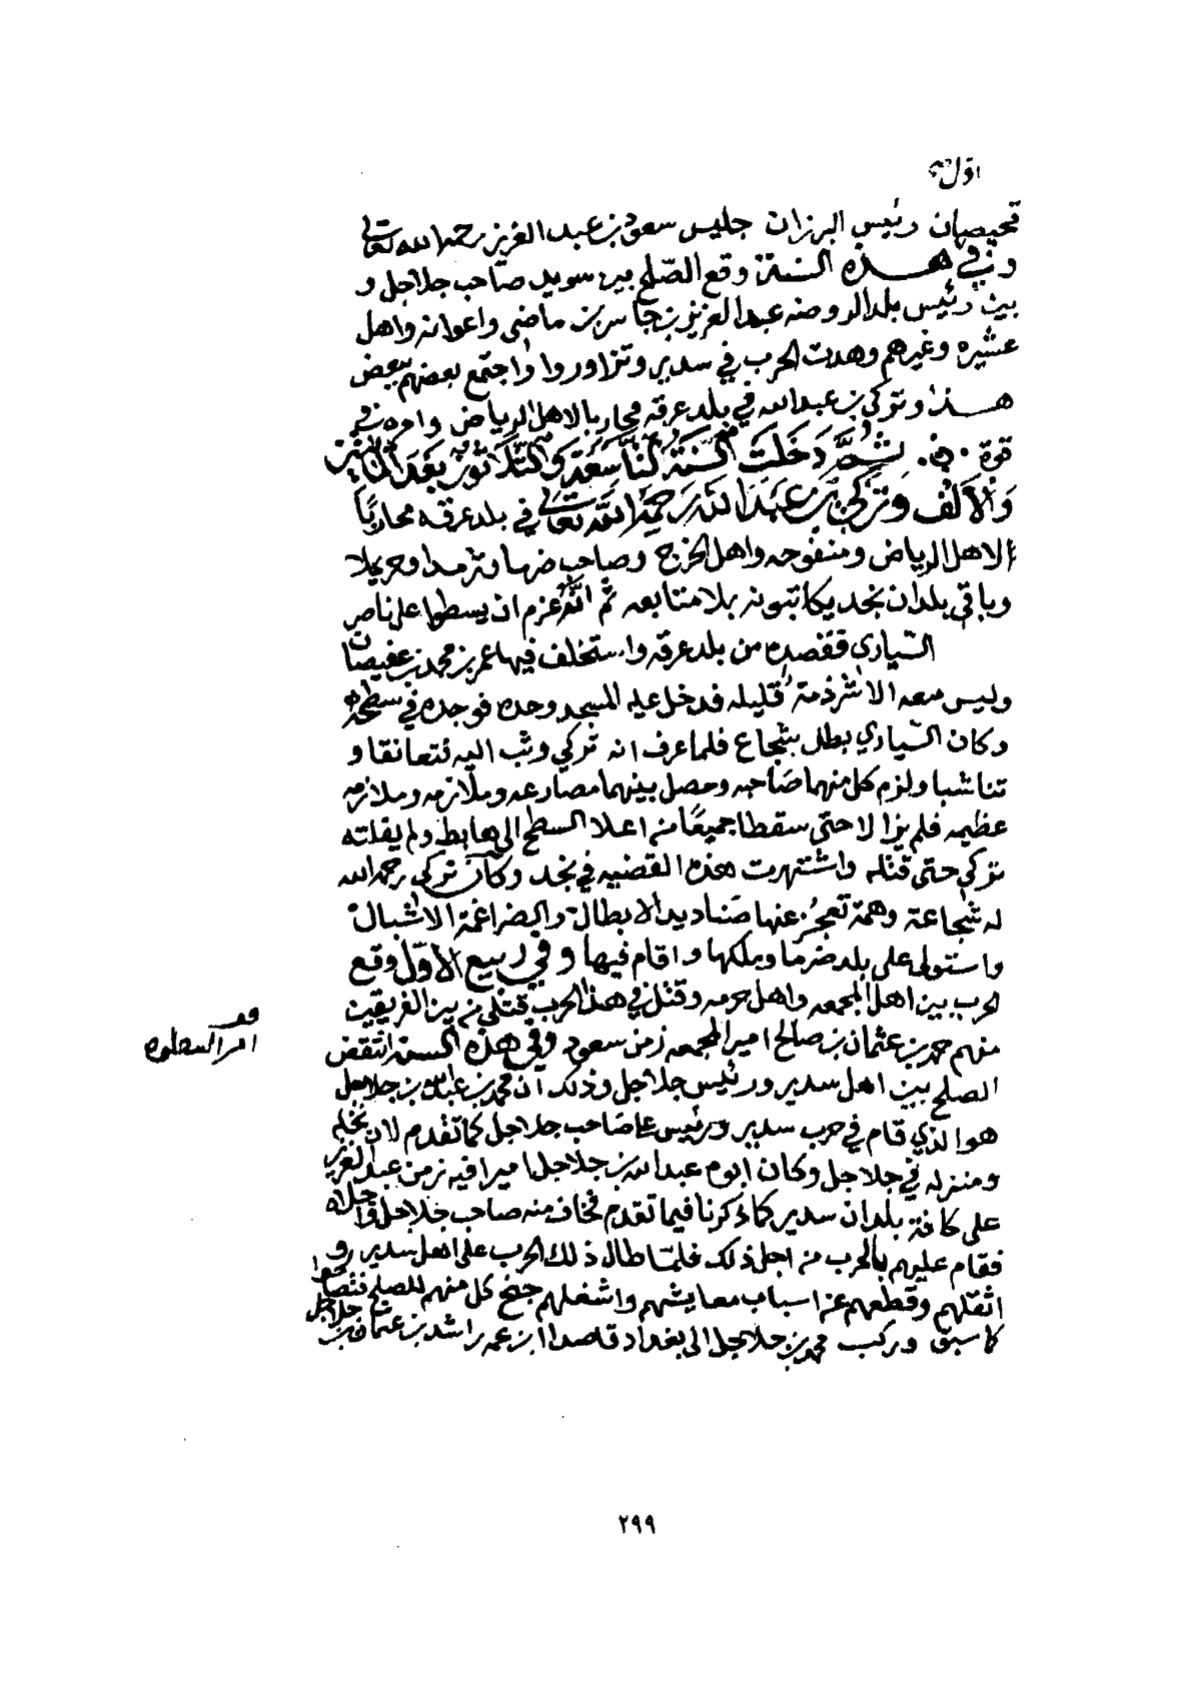 اول
قحيصان رئيس البرزان جليس سعود بن عبد العزيز رحمه الله تعالى
وفي هذه السنة وقع الصلح بين سويد صاحب جلاجل و
بين رئيس بلد الروضه عبد العزيز بن جاسر بن ماضي واعوانه واهل
عشيره وغيرهم وهدت الحرب في سدير وتزاوروا واجتمع بعضهم ببعض
هذا وتركي بن عبد الله في بلد عرقه محاربا لاهل الرياض وامره في
قوة . ثُمَّ دَخَلَتْ السنة التاسعة والثلاثون بعد المائتين
والألف وتركي بن عبد الله رحمه الله تعالى في بلد عرقه محاربًا
لاهل الرياض ومنفوحه واهل الخرج وصاحب ضرما وثرمدا وحريملا
وباقي بلدان نجد يكاتبونه بلا متابعه ثم انه عزم ان يسطوا على ناصر
السياري فقصده من بلد عرقه واستخلف فيها عمر بن محمد بن عفيصان
وليس معه الا شرذمة قليله فدخل عليه المسجد وحده فوجده في سطحه
وكان السياري بطل شجاع فلما عرف انه تركي وثب اليه فتعانقا و
تناشبا ولزم كل منهما صاحبه وحصل بينهما مصارعه وملازمه وملازمه
عظيمه فلم يزالا حتى سقطا جميعًا من اعلا السطح الى هابط ولم يفلته
تركي حتى قتله واشتهرت هذه القضيه في نجد وكان تركي رحمه الله
له شجاعة وهمة تعجز عنها صناديد الابطال والضراغمة الاشبال
واستولى على بلد ضرما وملكها واقام فيها وفي ربيع الاوّل وقع
الحرب بين اهل المجمعه واهل حرمه وقتل في هذا الحرب قتلى من بين الفريقين
منهم حمد بن عثمان بن صالح امير المجمعه زمن سعود وفي هذه السنة انتقض
الصلح بين اهل سدير ورئيس جلاجل وذلك ان محمد بن عبد الله بن جلاجل
هو الذي قام في حرب سدير ورئيس صاحب جلاجل كما تقدم لان نخله
ومنزله في جلاجل وكان ابوه عبد الله بن جلاجل اميرا فيه زمن عبد العزيز
على كافة بلدان سدير كما ذكرنا فيما تقدم فخاف منه صاحب جلاجل واجلاه
فقام عليهم بالحرب من اجل ذلك فلما طال ذلك الحرب على اهل سدير و
اثقلهم وقطعهم عن اسباب معايشهم واشغلهم جنح كل منهم للصلح فتصالحوا
كما سبق وركب محمد بن جلاجل الى بغداد قاصدا ابن عمه راشد بن عثمان بن جلاجل
٢٩٩